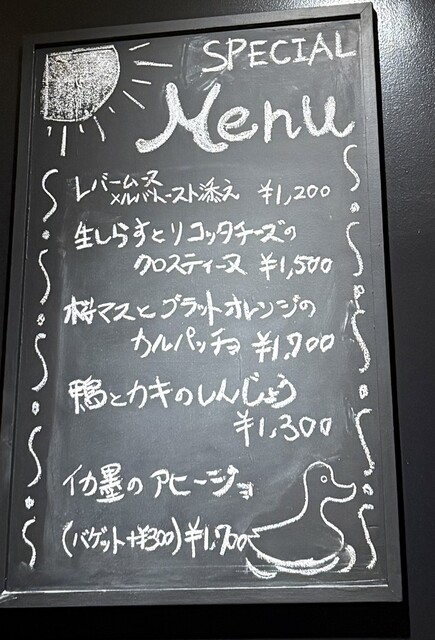 SPECIAL
Menu
レバームース
メルバトースト添え ¥1,200
生しらすとリコッタチーズの
クロスティーヌ ¥1,500
桜マスとブラットオレンジの
カルパッチョ ¥1,700
鴨とカキのしんじょう
¥1,300
イカ墨のアヒージョ
(バゲット+¥300) ¥1,700